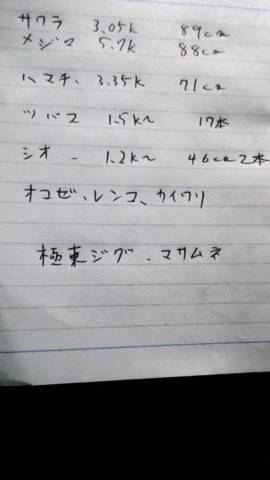 サワラ 3.05k 89cm
メジロ 5.7k 88cm
ハマチ. 3.35k 71cm
ツバス 1.5k~ 17本
シオ - 1.2k~ 46cm 2本
オコゼ、レンコ、カイワリ
極東ジグ、マサムネ